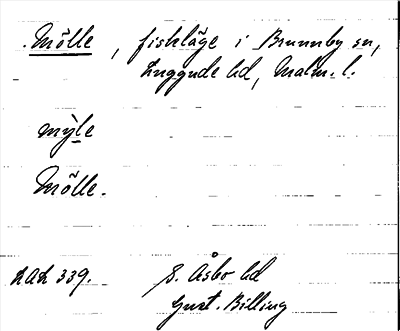 Mölle, fiskläge i Brunnby sn,
Luggude hd, Malm. l.
mỳle
Mölle.
LAL 339. S. Åsbo hd
Gust. Billing